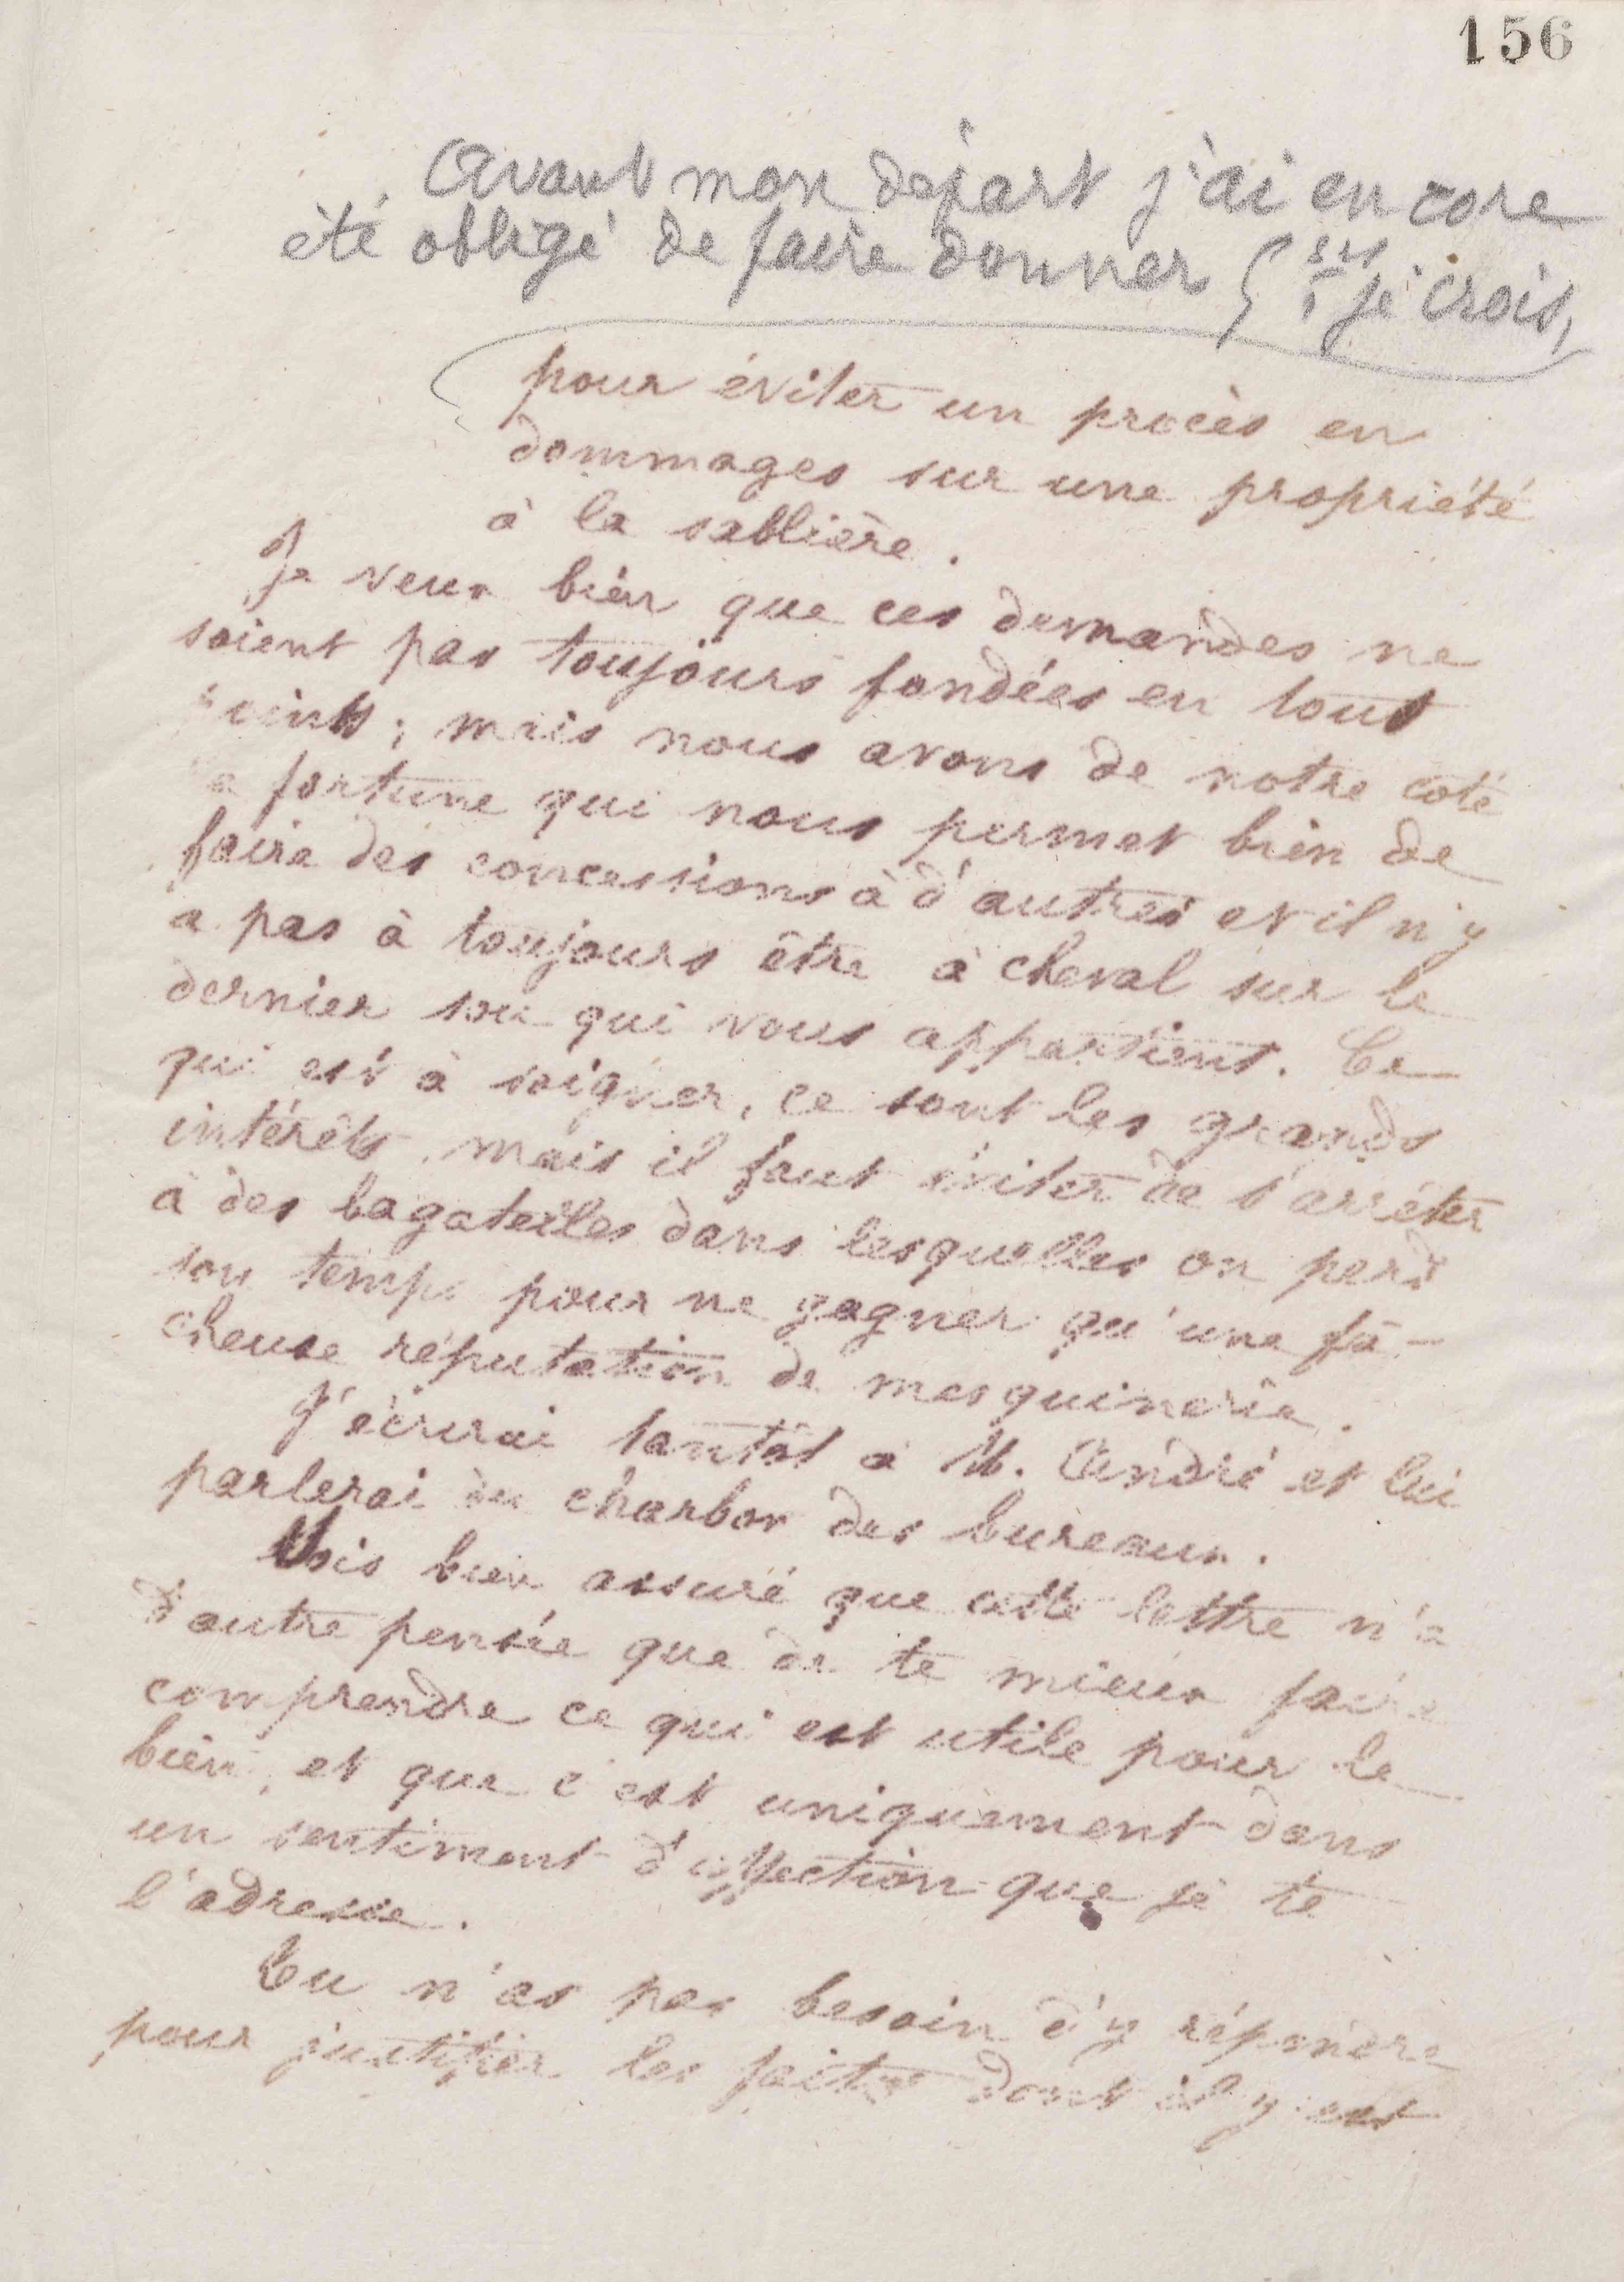 156
Avant mon départ j'ai encore
été obligé de faire donner je crois,
pour éviter un procès en
dommages sur une propriété
à la sablière.
Je veux bien que ces demandes ne
soient pas toujours fondées en tout
point; mais nous avons de notre coté
la fortune qui nous permet bien de
faire des concessions à d'autres et il n'y
a pas à toujours être à cheval sur le
dernier sou qui vous appartient. Ce
qui est à soigner, ce sont les grands
intérêts, mais il faut éviter de s'arrêter
à des bagatelles dans lesquelles on perd
son temps pour ne gagner qu'une fâ-
cheuse réputation de mesquinerie.
J'écrirai tantôt à M. André et lui
parlerai du charbon des bureaux.
Sois bien assuré que cette lettre n'a
d'autre pensée que de te mieux faire
comprendre ce qui est utile pour le
bien, et que c'est uniquement dans
un sentiment d'affection que je te
l'adresse.
Tu n'as pas besoin d'y répondre
pour justifier les faits dont il y est